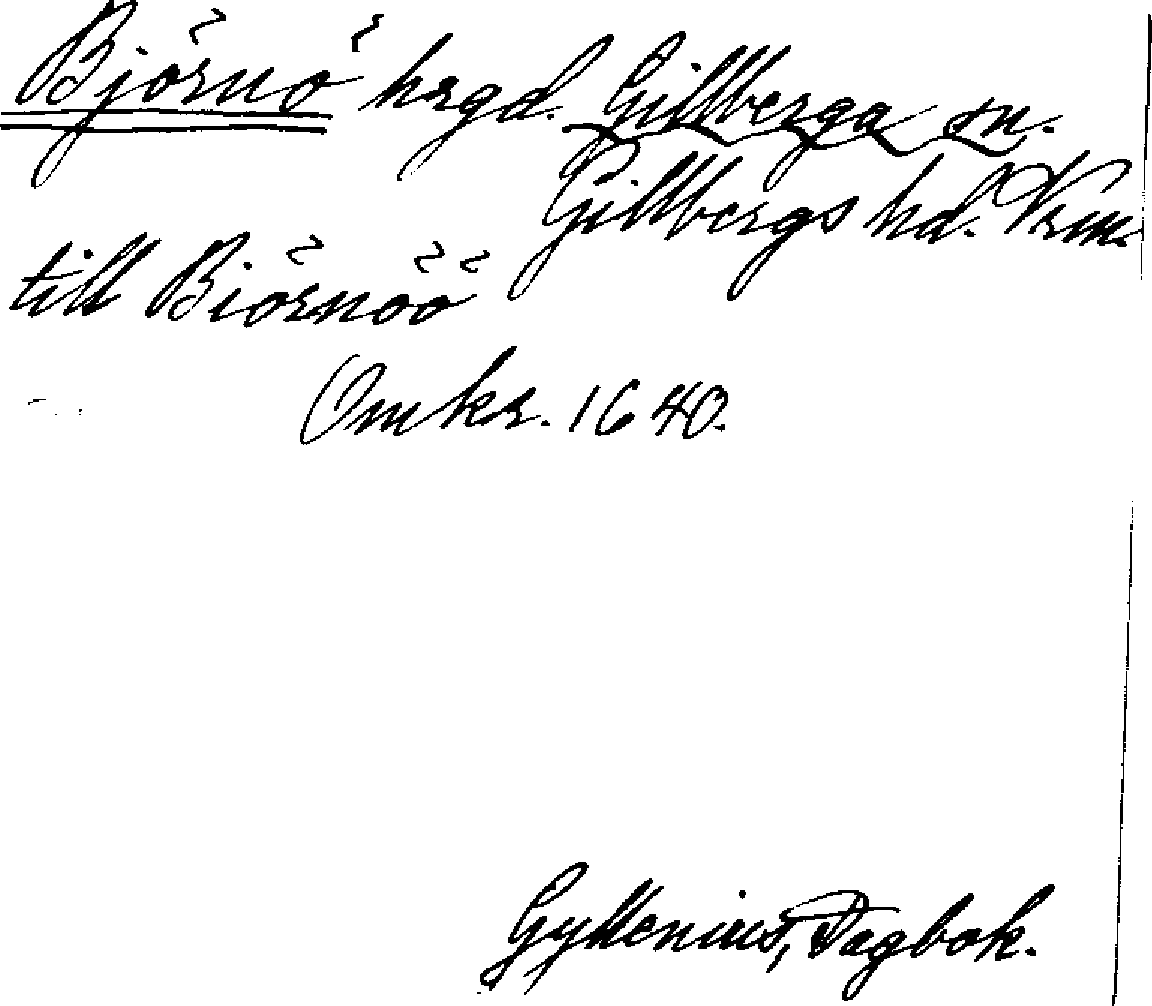 Björnö hrgd. Gillberga sn.
Gillbergs hd. Vrm.
till Biörnöö
Omkr. 1640.
Gyllenius, Dagbok.